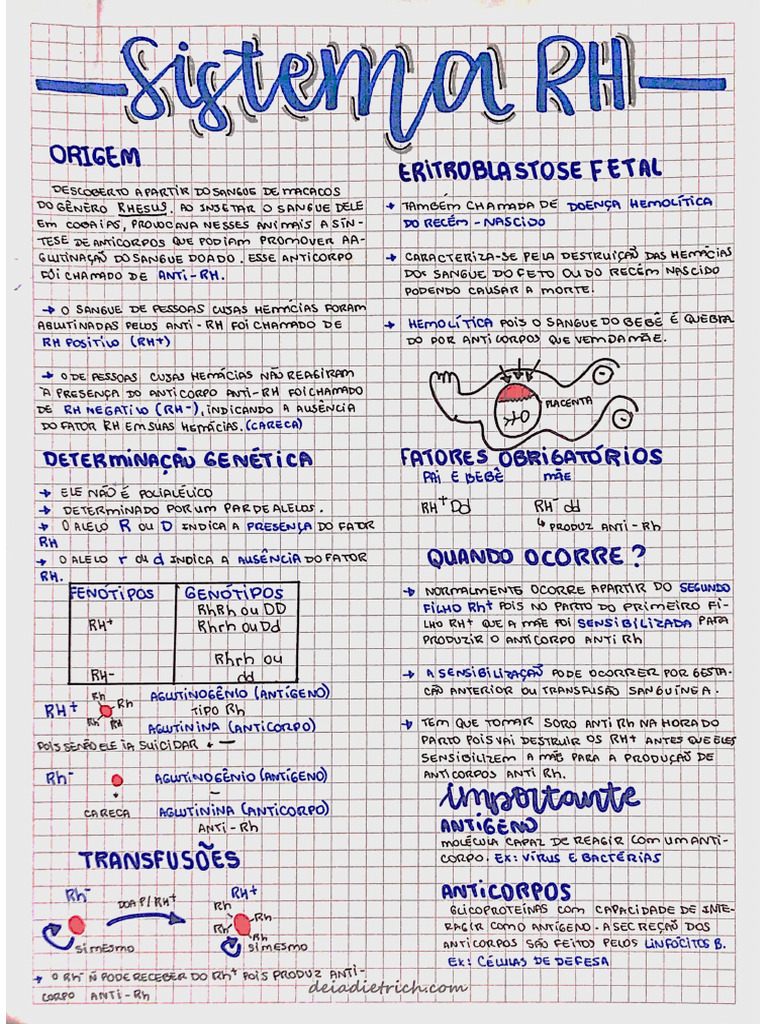 Sistema RH
ORIGEM
DESCOBERTO A PARTIR DO SANGUE DE MACACOS
DO GÊNERO RHESUS. AO INJETAR O SANGUE DELE
EM COBAIAS, PROVOCAVA NESSES ANIMAIS A SÍN-
TESE DE ANTICORPOS QUE PODIAM PROMOVER A A-
GLUTINAÇÃO DO SANGUE DOADO. ESSE ANTICORPO
FOI CHAMADO DE ANTI-RH.
→ O SANGUE DE PESSOAS CUJAS HEMÁCIAS FORAM
AGLUTINADAS PELOS ANTI-RH FOI CHAMADO DE
RH POSITIVO (RH+)
→ O DE PESSOAS CUJAS HEMÁCIAS NÃO REAGIRAM
À PRESENÇA DO ANTICORPO ANTI-RH FOI CHAMADO
DE RH NEGATIVO (RH-), INDICANDO A AUSÊNCIA
DO FATOR RH EM SUAS HEMÁCIAS. (CARECA)
DETERMINAÇÃO GENÉTICA
→ ELE NÃO É POLIALÉLICO
→ DETERMINADO POR UM PAR DE ALELOS.
→ O ALELO R OU D INDICA A PRESENÇA DO FATOR
RH
→ O ALELO r ou d INDICA A AUSÊNCIA DO FATOR
RH.
FENÓTIPOS GENÓTIPOS
RH+ RhRh ou DD
Rhrh ou Dd
RH- Rhrh ou
dd
RH+ Rh Rh Rh RH AGLUTINOGÊNIO (ANTÍGENO)
TIPO Rh
AGLUTININA (ANTICORPO)
POIS SENÃO ELE IA SUICIDAR ← —
Rh- AGLUTINOGÊNIO (ANTÍGENO)
—
CARECA AGLUTININA (ANTICORPO)
ANTI-Rh
TRANSFUSÕES
Rh- DOA P/ RH+ RH+
Rh Rh Rh Rh
SI MESMO SI MESMO
→ O Rh- Ñ PODE RECEBER DO Rh+ POIS PRODUZ ANTI-
CORPO ANTI-Rh
ERITROBLASTOSE FETAL
→ TAMBÉM CHAMADA DE DOENÇA HEMOLÍTICA
DO RECÉM-NASCIDO
→ CARACTERIZA-SE PELA DESTRUIÇÃO DAS HEMÁCIAS
DOS SANGUE DO FETO OU DO RECÉM NASCIDO
PODENDO CAUSAR A MORTE.
→ HEMOLÍTICA POIS O SANGUE DO BEBÊ É QUEBRA
DO POR ANTICORPOS QUE VEM DA MÃE.
PLACENTA
FATORES OBRIGATÓRIOS
PAI E BEBÊ MÃE
RH+ Dd RH- dd
↳ PRODUZ ANTI-Rh
QUANDO OCORRE?
→ NORMALMENTE OCORRE APARTIR DO SEGUNDO
FILHO Rh+ POIS NO PARTO DO PRIMEIRO FI-
LHO RH+ QUE A MÃE FOI SENSIBILIZADA PARA
PRODUZIR O ANTICORPO ANTI Rh
→ A SENSIBILIZAÇÃO PODE OCORRER POR GESTA-
CÃO ANTERIOR OU TRANSFUSÃO SANGUÍNEA.
→ TEM QUE TOMAR SORO ANTI Rh NA HORA DO
PARTO POIS VAI DESTRUIR OS RH+ ANTES QUE ELES
SENSIBILIZEM A MÃE PARA A PRODUÇÃO DE
ANTICORPOS ANTI Rh.
importante
ANTÍGENO
MOLÉCULA CAPAZ DE REAGIR COM UM ANTI-
CORPO. EX: VÍRUS E BACTÉRIAS
ANTICORPOS
GLICOPROTEÍNAS COM CAPACIDADE DE INTE-
RAGIR COM O ANTÍGENO. A SECREÇÃO DOS
ANTICORPOS SÃO FEITOS PELOS LINFÓCITOS B.
EX: CÉLULAS DE DEFESA
deiadietrich.com